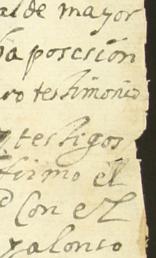 al de mayor
ha posesión
ro testimonio
y testigos
firmo él
Con el
y alonso